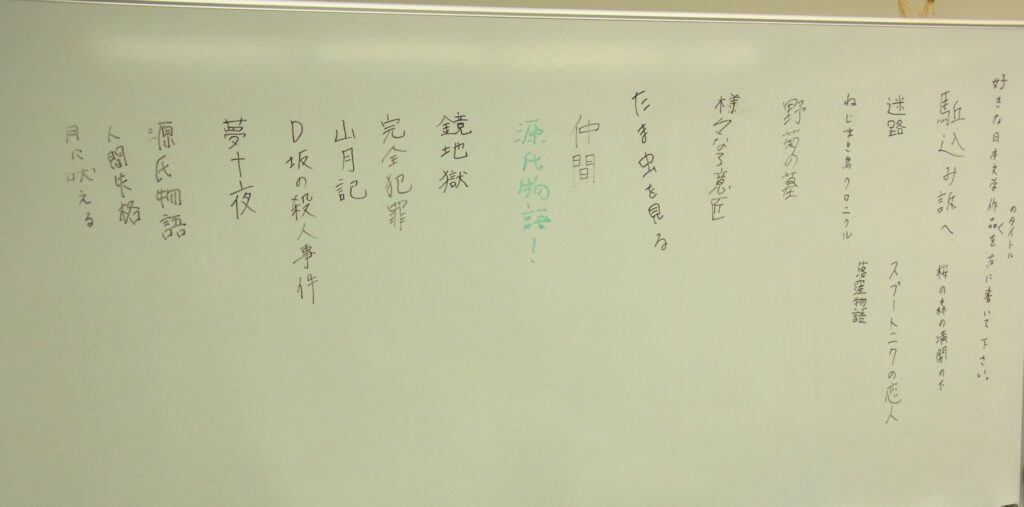 好きな日本文学作品のタイトルを左に書いて下さい。
駈込み訴へ
桜の森の満開の下
迷路
スプートニクの恋人
ねじまき鳥クロニクル
落窪物語
野菊の墓
様々なる意匠
たま虫を見る
仲間
源氏物語！
鏡地獄
完全犯罪
山月記
D坂の殺人事件
夢十夜
源氏物語
人間失格
月に吠える